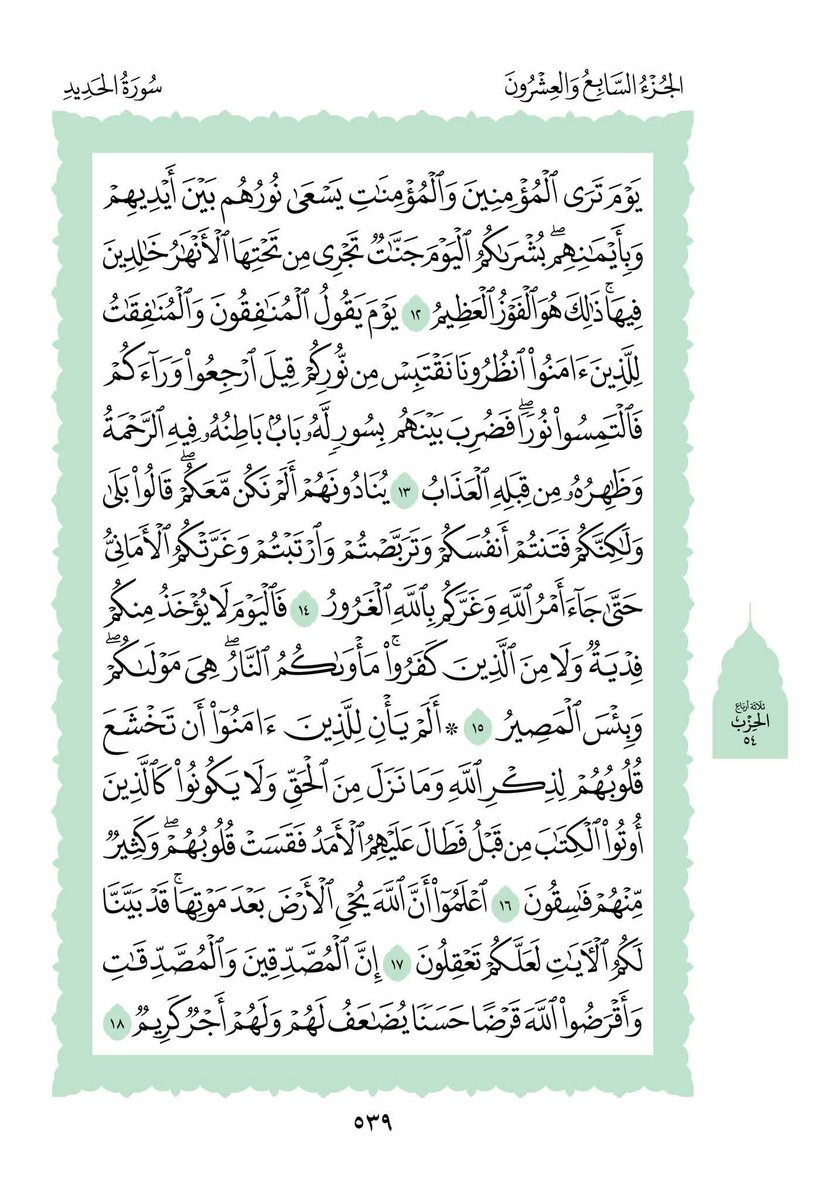 الجُزْءُ السَّابِعُ وَالعِشْرُونَ
سُورَةُ الحَدِيدِ
يَوۡمَ تَرَى ٱلۡمُؤۡمِنِينَ وَٱلۡمُؤۡمِنَٰتِ يَسۡعَىٰ نُورُهُم بَيۡنَ أَيۡدِيهِمۡ
وَبِأَيۡمَٰنِهِمۖ بُشۡرَىٰكُمُ ٱلۡيَوۡمَ جَنَّٰتٞ تَجۡرِي مِن تَحۡتِهَا ٱلۡأَنۡهَٰرُ خَٰلِدِينَ
فِيهَاۚ ذَٰلِكَ هُوَ ٱلۡفَوۡزُ ٱلۡعَظِيمُ ١٢ يَوۡمَ يَقُولُ ٱلۡمُنَٰفِقُونَ وَٱلۡمُنَٰفِقَٰتُ
لِلَّذِينَ ءَامَنُواْ ٱنظُرُونَا نَقۡتَبِسۡ مِن نُّورِكُمۡ قِيلَ ٱرۡجِعُواْ وَرَآءَكُمۡ
فَٱلۡتَمِسُواْ نُورٗاۖ فَضُرِبَ بَيۡنَهُم بِسُورٖ لَّهُۥ بَابُۢ بَاطِنُهُۥ فِيهِ ٱلرَّحۡمَةُ
وَظَٰهِرُهُۥ مِن قِبَلِهِ ٱلۡعَذَابُ ١٣ يُنَادُونَهُمۡ أَلَمۡ نَكُن مَّعَكُمۡۖ قَالُواْ بَلَىٰ
وَلَٰكِنَّكُمۡ فَتَنتُمۡ أَنفُسَكُمۡ وَتَرَبَّصۡتُمۡ وَٱرۡتَبۡتُمۡ وَغَرَّتۡكُمُ ٱلۡأَمَانِيُّ
حَتَّىٰ جَآءَ أَمۡرُ ٱللَّهِ وَغَرَّكُم بِٱللَّهِ ٱلۡغَرُورُ ١٤ فَٱلۡيَوۡمَ لَا يُؤۡخَذُ مِنكُمۡ
فِدۡيَةٞ وَلَا مِنَ ٱلَّذِينَ كَفَرُواْۚ مَأۡوَىٰكُمُ ٱلنَّارُۖ هِيَ مَوۡلَىٰكُمۡۖ
وَبِئۡسَ ٱلۡمَصِيرُ ١٥ ۞ أَلَمۡ يَأۡنِ لِلَّذِينَ ءَامَنُوٓاْ أَن تَخۡشَعَ
قُلُوبُهُمۡ لِذِكۡرِ ٱللَّهِ وَمَا نَزَلَ مِنَ ٱلۡحَقِّ وَلَا يَكُونُواْ كَٱلَّذِينَ
أُوتُواْ ٱلۡكِتَٰبَ مِن قَبۡلُ فَطَالَ عَلَيۡهِمُ ٱلۡأَمَدُ فَقَسَتۡ قُلُوبُهُمۡۖ وَكَثِيرٞ
مِّنۡهُمۡ فَٰسِقُونَ ١٦ ٱعۡلَمُوٓاْ أَنَّ ٱللَّهَ يُحۡيِ ٱلۡأَرۡضَ بَعۡدَ مَوۡتِهَاۚ قَدۡ بَيَّنَّا
لَكُمُ ٱلۡأٓيَٰتِ لَعَلَّكُمۡ تَعۡقِلُونَ ١٧ إِنَّ ٱلۡمُصَّدِّقِينَ وَٱلۡمُصَّدِّقَٰتِ
وَأَقۡرَضُواْ ٱللَّهَ قَرۡضًا حَسَنٗا يُضَٰعَفُ لَهُمۡ وَلَهُمۡ أَجۡرٞ كَرِيمٞ ١٨
ثلاثة أرباع
الحِزْب
٥٤
٥٣٩